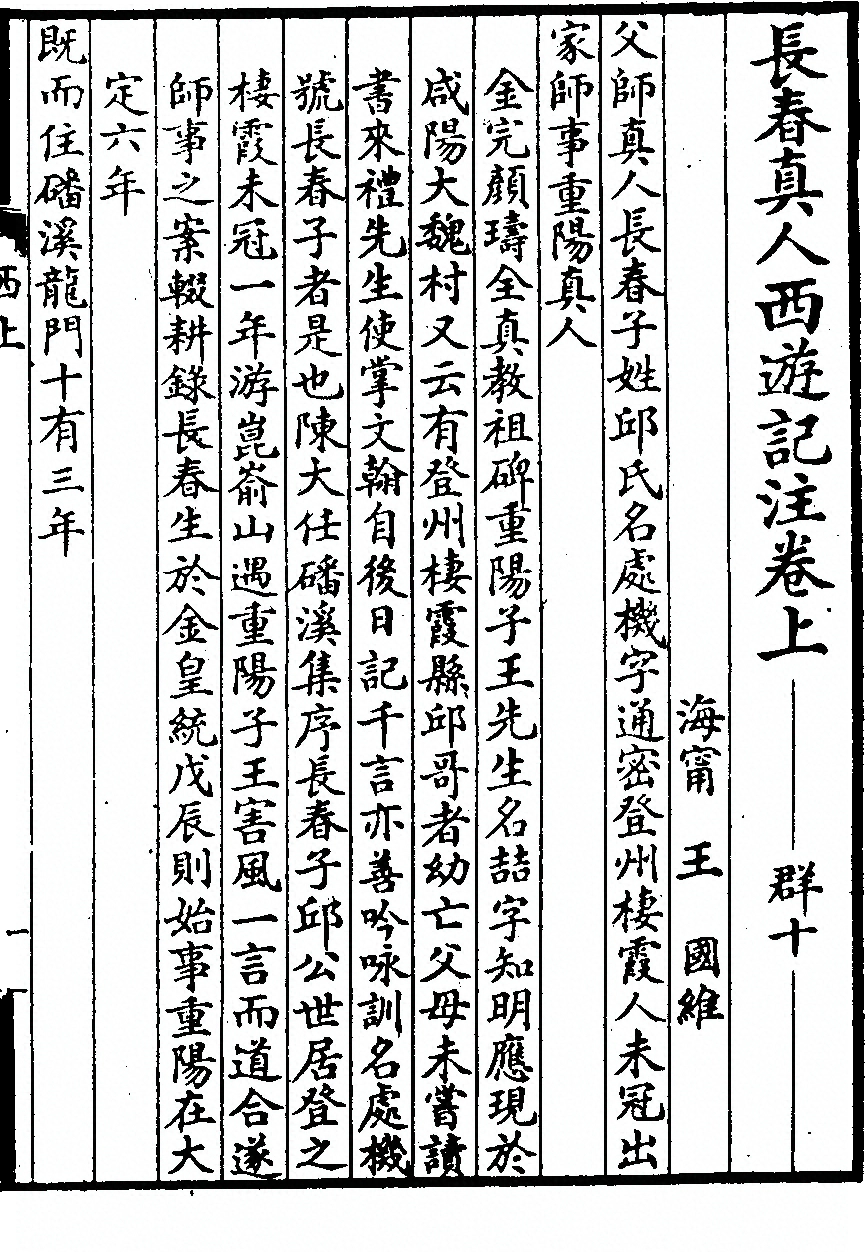 長春真人西遊記注卷上
群十
海甯 王 國維
父師真人長春子姓邱氏名處機字通密登州棲霞人未冠出
家師事重陽真人
金完顏璹全真教祖碑重陽子王先生名嚞字知明應現於
咸陽大魏村又云有登州棲霞縣邱哥者幼亡父母未嘗讀
書來禮先生使掌文翰自後日記千言亦善吟咏訓名處機
號長春子者是也陳大任磻溪集序長春子邱公世居登之
棲霞未冠一年游崑嵛山遇重陽子王害風一言而道合遂
師事之案輟耕錄長春生於金皇統戊辰則始事重陽在大
定六年
既而住磻溪龍門十有三年
西上
一